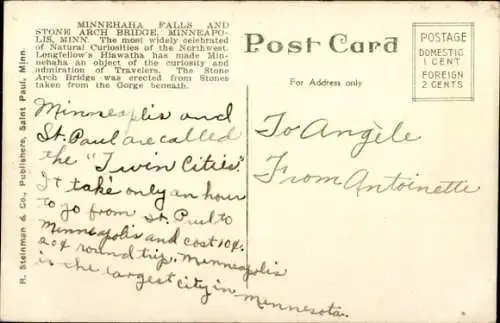 MINNEHAHA FALLS AND
STONE ARCH BRIDGE, MINNEAPO-
LIS, MINN. The most widely celebrated
of Natural Curiosities of the Northwest.
Longfellow's Hiawatha has made Min-
nehaha an object of the curiosity and
admiration of Travelers. The Stone
Arch Bridge was erected from Stones
taken from the Gorge beneath.
Post Card
POSTAGE
DOMESTIC
1 CENT
FOREIGN
2 CENTS
For Address only
R. Steinman & Co., Publishers, Saint Paul, Minn.
Minneaplis and
St. Paul are called
the "Twin Cities".
It take only an hour
to go from St. Paul to
Minneapolis and cost 10¢.
20¢ round trip. Minneapolis
is the largest city in Minnesota.
To Angèle
From Antoinette